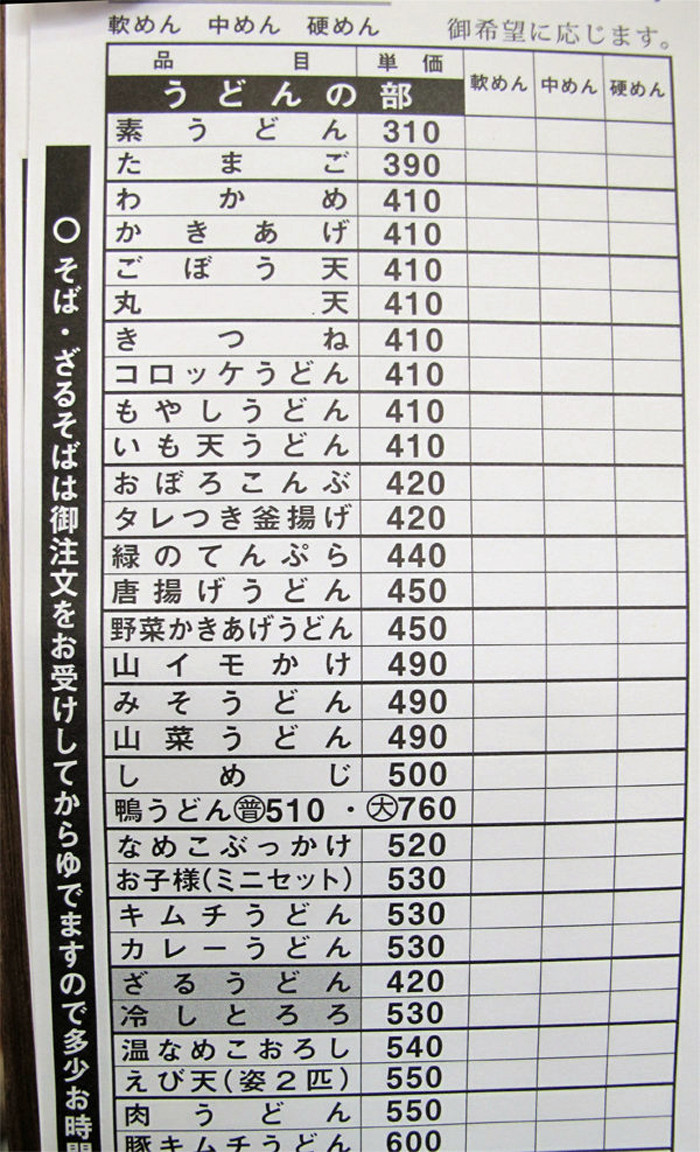 軟めん 中めん 硬めん 御希望に応じます。
品目 単価 軟めん 中めん 硬めん
うどんの部
素うどん 310
たまご 390
わかめ 410
かきあげ 410
ごぼう天 410
丸天 410
きつね 410
コロッケうどん 410
もやしうどん 410
いも天うどん 410
おぼろこんぶ 420
タレつき釜揚げ 420
緑のてんぷら 440
唐揚げうどん 450
野菜かきあげうどん 450
山イモかけ 490
みそうどん 490
山菜うどん 490
しめじ 500
鴨うどん㊥510・㊤760
なめこぶっかけ 520
お子様(ミニセット) 530
キムチうどん 530
カレーうどん 530
ざるうどん 420
冷しとろろ 530
温なめこおろし 540
えび天(姿2匹) 550
肉うどん 550
豚キムチうどん 600
○そば・ざるそばは御注文をお受けしてからゆでますので多少お時間